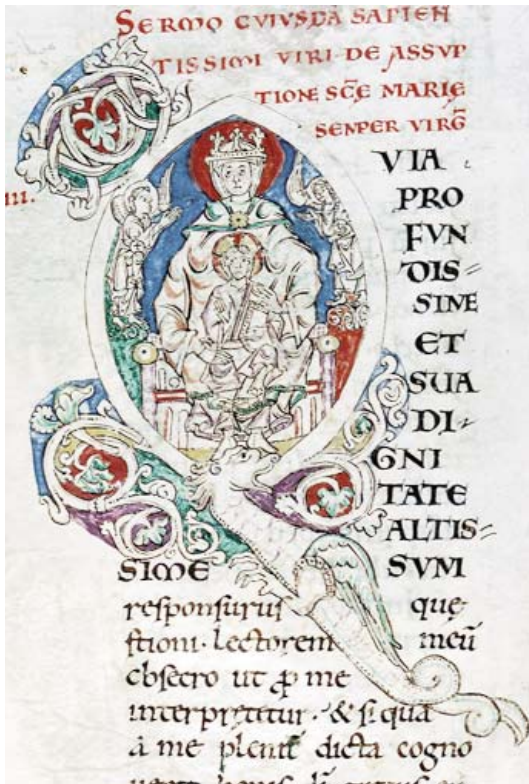 SERMO CVIVSDĀ SAPIEN
TISSIMI VIRI DE ASSVP
TIONE SCĒ MARIE
SENPER VIRḠ
III.
VIA
PRO
FVN
DIS=
SIME
ET
SUA
DI-
GNI
TATE
ALTIS=
SIME SVM
responsurus quę
stioni. Lectorem meū
obsecro ut ꝓ me
interpretetur. & si qua
a me plenit̄ dicta cogno